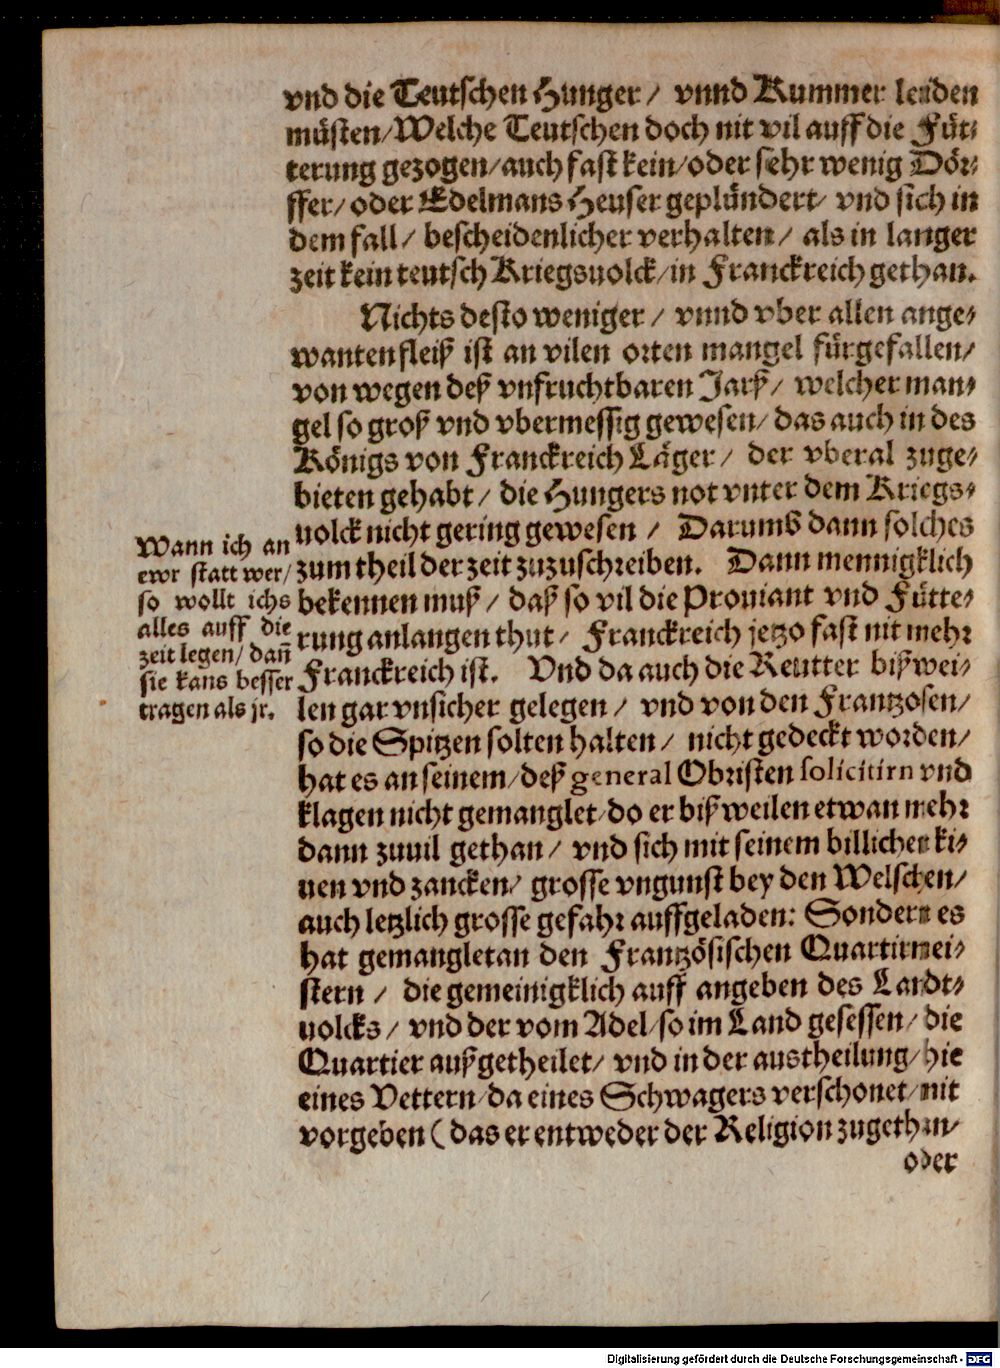 vnd die Teutschen Hunger / vnnd Kummer leiden
müsten / Welche Teutschen doch nit vil auff die Füt⸗
terung gezogen / auch fast kein / oder sehr wenig Dör⸗
ffer / oder Edelmans Heuser geplündert / vnd sich in
dem fall / bescheidenlicher verhalten / als in langer
zeit kein teutsch Kriegsuolck / in Franckreich gethan.
Nichts desto weniger / vnnd vber allen ange⸗
wanten fleiß ist an vilen orten mangel fürgefallen /
von wegen deß vnfruchtbaren Jarß / welcher man⸗
gel so groß vnd vbermessig gewesen / das auch in des
Königs von Franckreich Läger / der vberal zuge⸗
bieten gehabt / die Hungers not vnter dem Kriegs⸗
uolck nicht gering gewesen / Darumb dann solches
zum theil der zeit zuzuschreiben. Dann mennigklich
bekennen muß / daß so vil die Prouiant vnd Fütte⸗
rung anlangen thut / Franckreich jetzo fast nit mehr
Franckreich ist. Vnd da auch die Reutter biß wei⸗
len gar vnsicher gelegen / vnd von den Frantzosen /
so die Spitzen solten halten / nicht gedeckt worden /
hat es an seinem / deß general Obristen solicitirn vnd
klagen nicht gemanglet / do er biß weilen etwan mehr
dann zuuil gethan / vnd sich mit seinem billichen ki⸗
uen vnd zancken / grosse vngunst bey den Welschen /
auch letzlich grosse gefahr auffgeladen: Sondern es
hat gemangletan den Frantzösischen Quartirmei⸗
stern / die gemeinigklich auff angeben des Landt⸗
uolcks / vnd der vom Adel / so im Land gesessen / die
Quartier außgetheilet / vnd in der austheilung / hie
eines Vettern / da eines Schwagers verschonet / mit
vorgeben ( das er entweder der Religion zugethan /
oder
Wann ich an
ewr statt wer /
so wollt ichs
alles auff die
zeit legen / dañ
sie kans besser
tragen als jr.
Digitalisierung gefördert durch die Deutsche Forschungsgemeinschaft - DFG